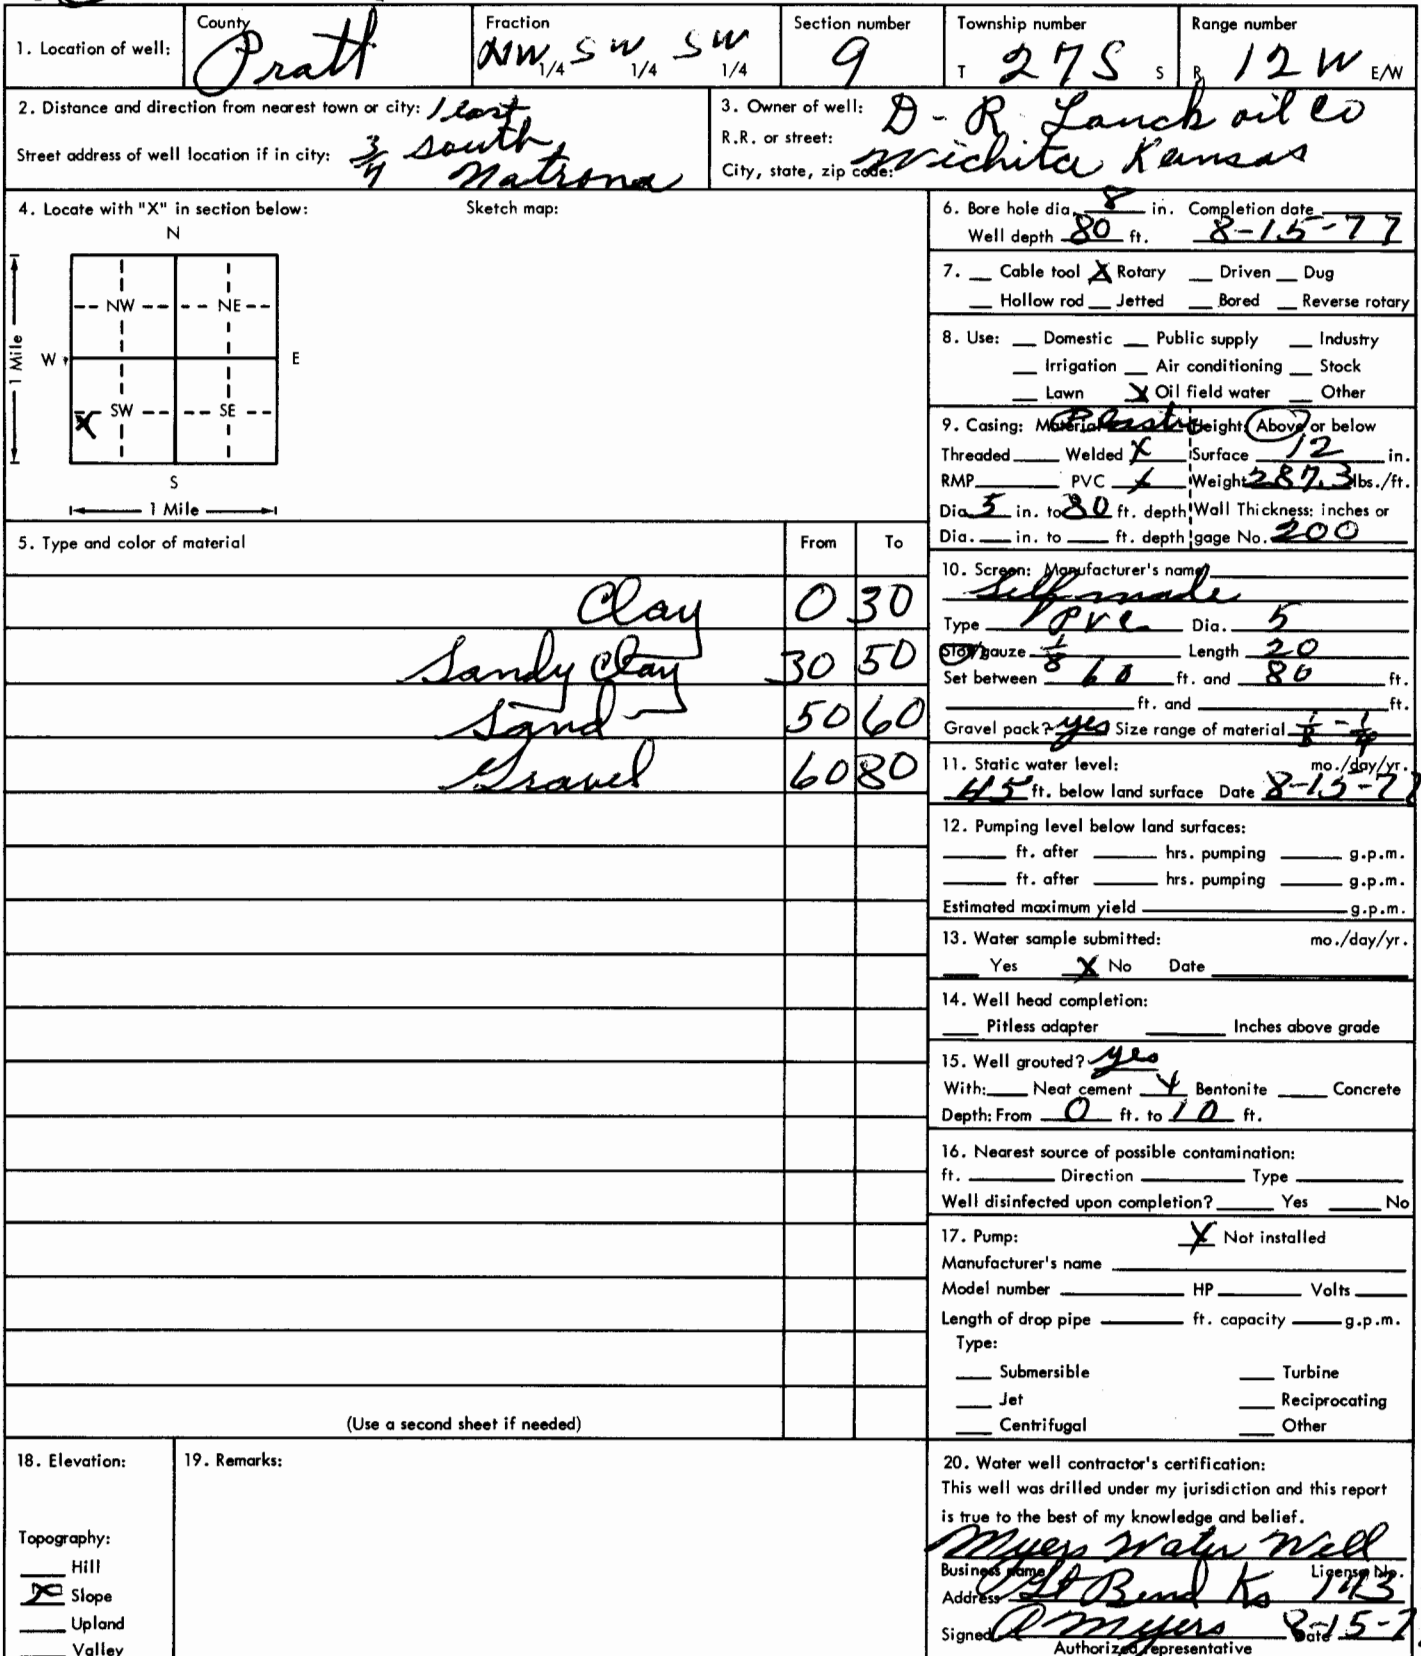 1. Location of well: County Pratt Fraction NW 1/4 SW 1/4 SW 1/4 Section number 9 Township number T 27S S Range number R 12W E/W
2. Distance and direction from nearest town or city: 1 east
3/4 south
Street address of well location if in city: Natrona
3. Owner of well: D-R Lauck oil Co
R.R. or street:
City, state, zip code: Wichita Kansas
4. Locate with "X" in section below: Sketch map:
N
NW NE
W E
1 Mile
X SW SE
S
1 Mile
5. Type and color of material From To
Clay 0 30
Sandy Clay 30 50
Sand 50 60
Gravel 60 80
(Use a second sheet if needed)
6. Bore hole dia. 8 in. Completion date
Well depth 80 ft. 8-15-77
7. Cable tool X Rotary Driven Dug
Hollow rod Jetted Bored Reverse rotary
8. Use: Domestic Public supply Industry
Irrigation Air conditioning Stock
Lawn X Oil field water Other
9. Casing: Material Plastic Height: Above or below
Threaded Welded X Surface 12 in.
RMP PVC X Weight 287.3 lbs./ft.
Dia. 5 in. to 80 ft. depth Wall Thickness: inches or
Dia. in. to ft. depth gage No. 200
10. Screen: Manufacturer's name
Self made
Type PVC Dia. 5
Slot/gauze 1/8 Length 20
Set between 60 ft. and 80 ft.
ft. and ft.
Gravel pack? yes Size range of material 1/8 - 1/4
11. Static water level: mo./day/yr.
45 ft. below land surface Date 8-15-77
12. Pumping level below land surfaces:
ft. after hrs. pumping g.p.m.
ft. after hrs. pumping g.p.m.
Estimated maximum yield g.p.m.
13. Water sample submitted: mo./day/yr.
Yes X No Date
14. Well head completion:
Pitless adapter Inches above grade
15. Well grouted? yes
With: Neat cement X Bentonite Concrete
Depth: From 0 ft. to 10 ft.
16. Nearest source of possible contamination:
ft. Direction Type
Well disinfected upon completion? Yes No
17. Pump: X Not installed
Manufacturer's name
Model number HP Volts
Length of drop pipe ft. capacity g.p.m.
Type:
Submersible Turbine
Jet Reciprocating
Centrifugal Other
18. Elevation:
Topography:
Hill
X Slope
Upland
Valley
19. Remarks:
20. Water well contractor's certification:
This well was drilled under my jurisdiction and this report
is true to the best of my knowledge and belief.
Myers Water Well
Business name License No.
Address Gt Bend Ks 143
Signed A Myers Date 8-15-7
Authorized representative